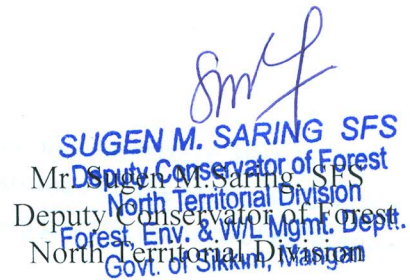 SUGEN M. SARING SFS
Deputy Conservator of Forest
North Territorial Division
Forest, Env. & W/L Mgmt. Deptt.
Govt. of Sikkim, Mangan
Mr. Sugen M.Saring, SFS
Deputy Conservator of Forest
North Territorial Division